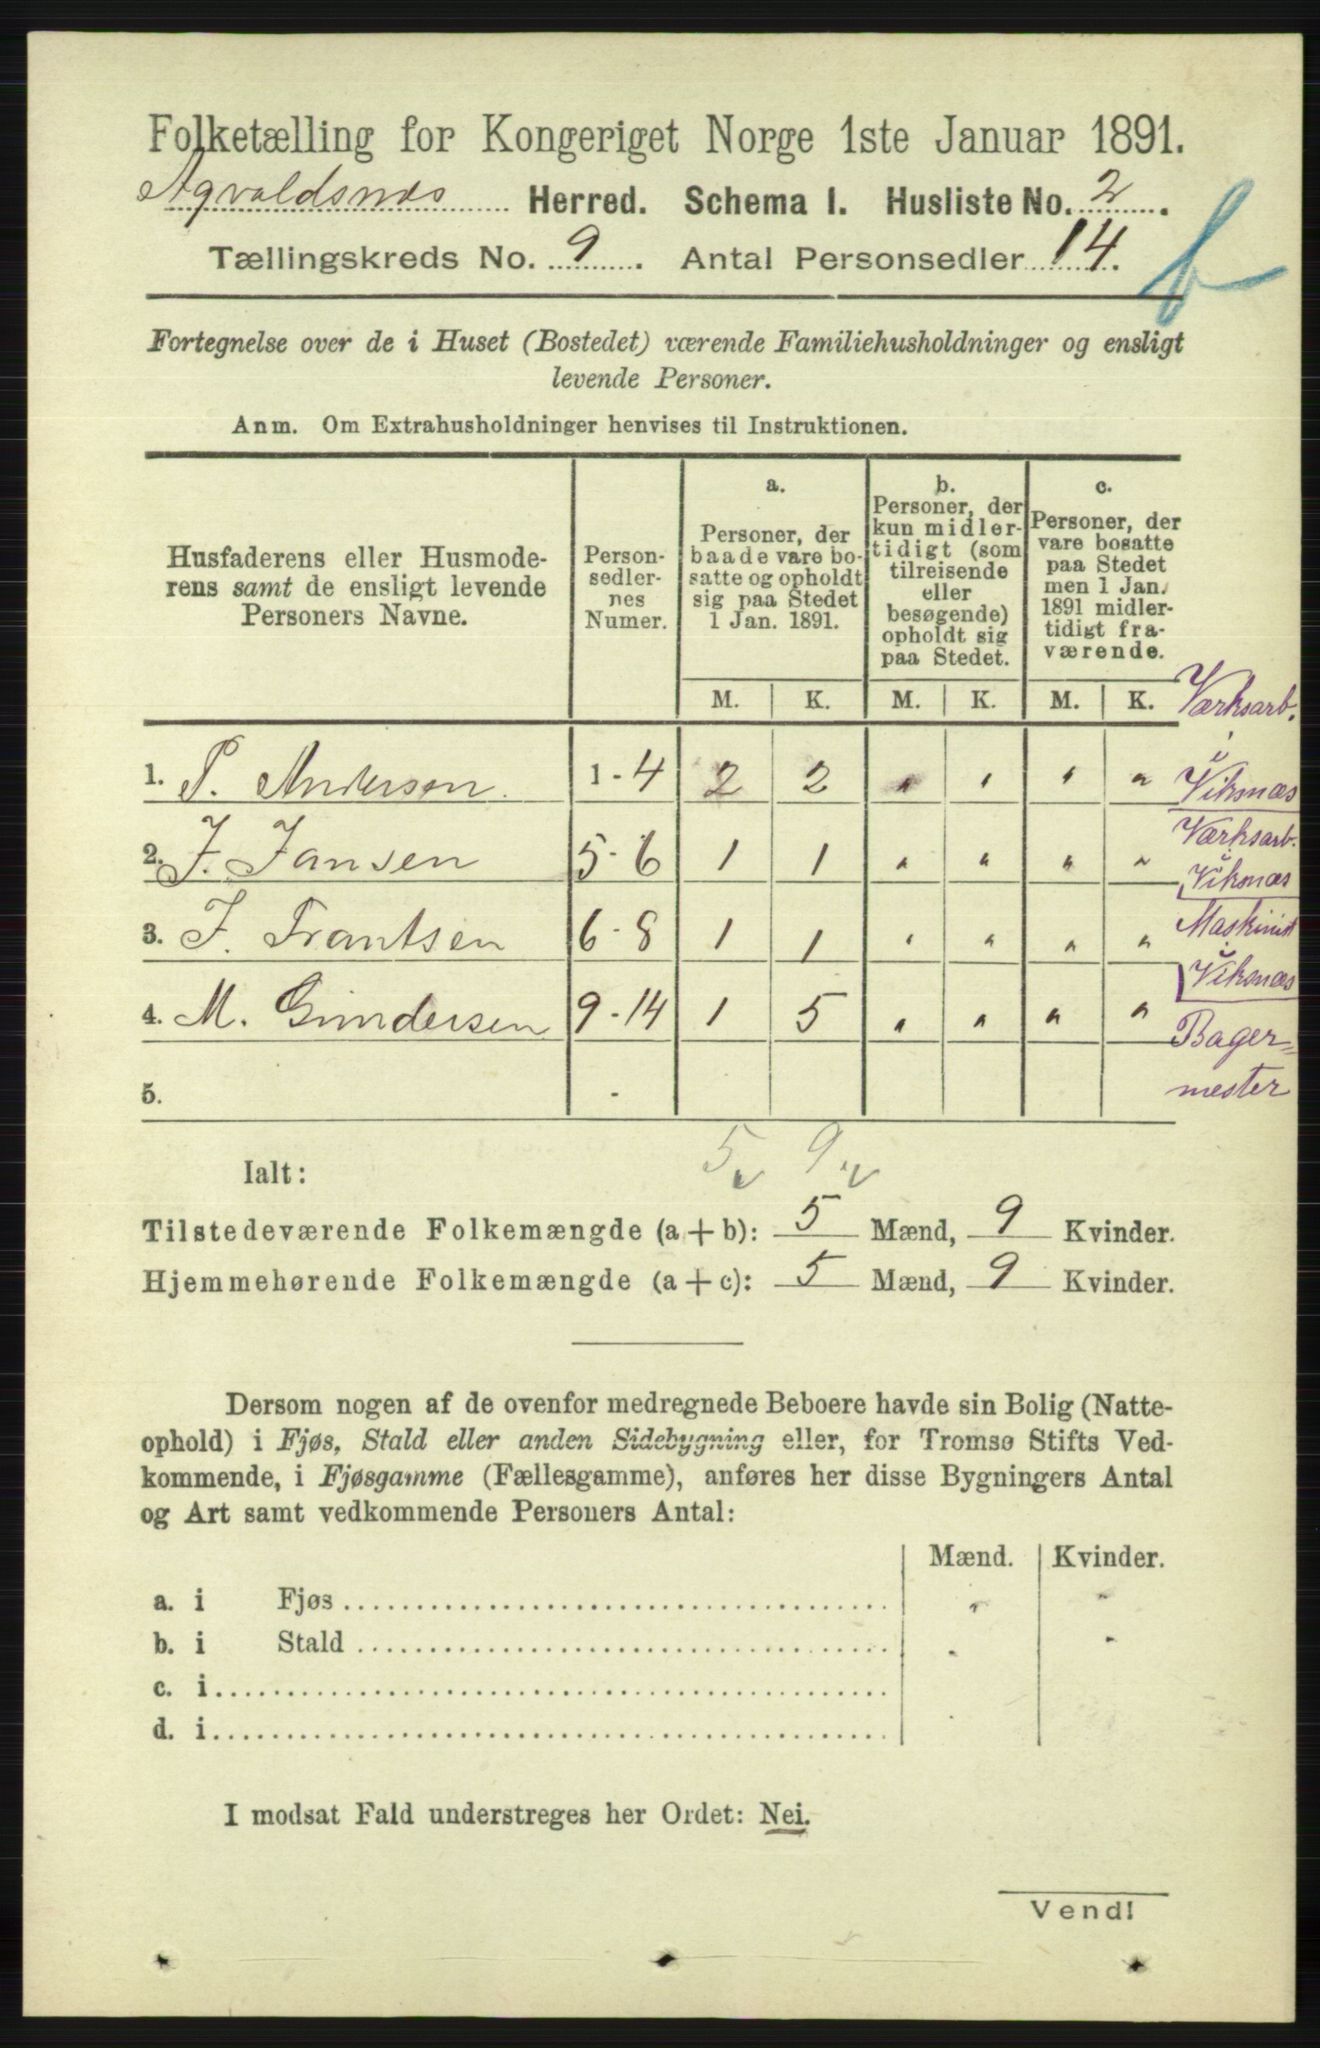 Folketælling for Kongeriget Norge 1ste Januar 1891.
Agvaldsnæs Herred. Schema I. Husliste No. 2.
Tællingskreds No. 9. Antal Personsedler 14.
Fortegnelse over de i Huset (Bostedet) værende Familiehusholdninger og ensligt
levende Personer.
Anm. Om Extrahusholdninger henvises til Instruktionen.
Husfaderens eller Husmode-
rens samt de ensligt levende
Personers Navne.
Person-
sedler-
nes
Numer.
a.
Personer, der
baade vare bo-
satte og opholdt
sig paa Stedet
1 Jan. 1891.
b.
Personer, der
kun midler-
tidigt (som
tilreisende
eller
besøgende)
opholdt sig
paa Stedet.
c.
Personer, der
vare bosatte
paa Stedet
men 1 Jan.
1891 midler-
tidigt fra-
værende.
M. K. M. K. M. K.
Værksarb.
i
Viksnæs
1. P. Andersen. 1-4 2 2 " " " "
Værksarb.
i
Viksnæs
2. J. Jansen 5-6 1 1 " " " "
Maskinist
i
Viksnæs
3. J. Frantsen 6-8 1 1 " " " "
4. M. Gundersen 9-14 1 5 " " " "
Bager=
mester
5. -
5 9
Ialt:
Tilstedeværende Folkemængde (a + b): 5 Mænd, 9 Kvinder.
Hjemmehørende Folkemængde (a + c): 5 Mænd, 9 Kvinder.
Dersom nogen af de ovenfor medregnede Beboere havde sin Bolig (Natte-
ophold) i Fjøs, Stald eller anden Sidebygning eller, for Tromsø Stifts Ved-
kommende, i Fjøsgamme (Fællesgamme), anføres her disse Bygningers Antal
og Art samt vedkommende Personers Antal:
Mænd. Kvinder.
a. i Fjøs " "
b. i Stald " "
c. i
d. i
I modsat Fald understreges her Ordet: Nei.
Vend!